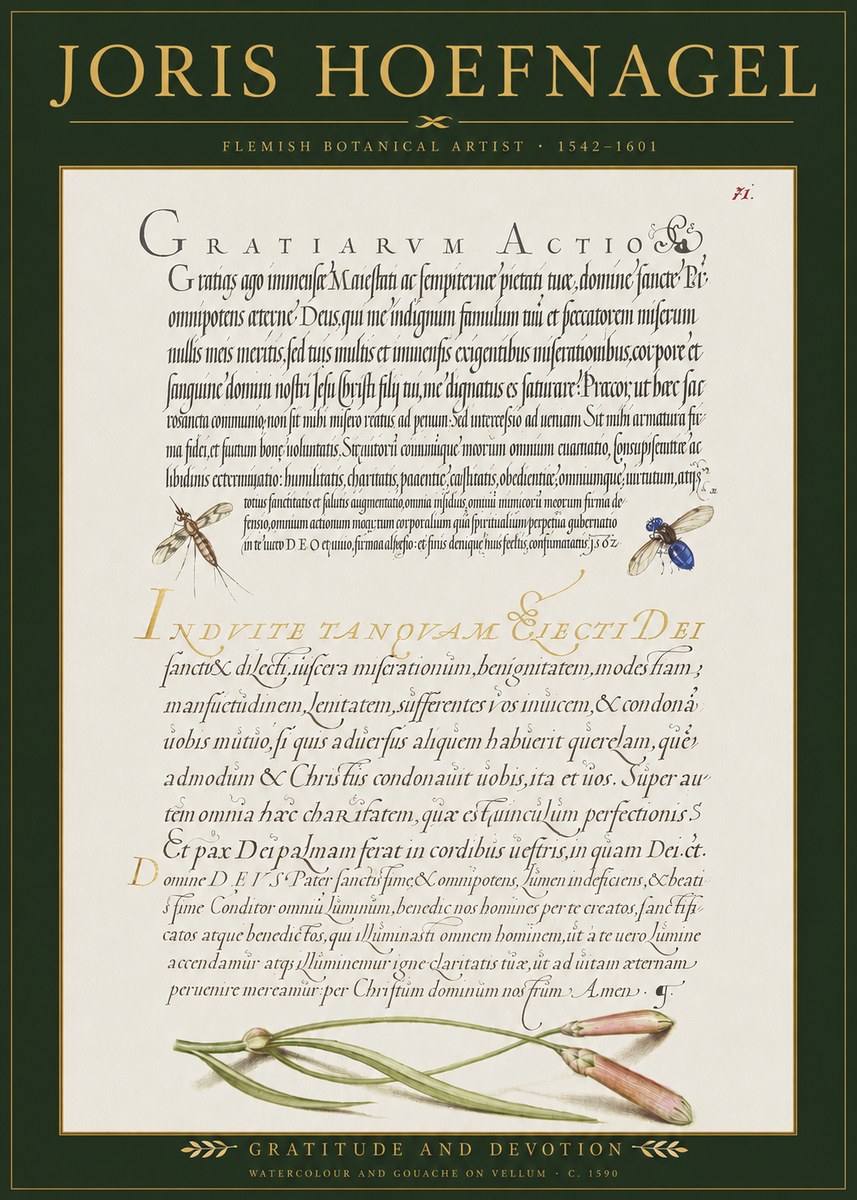 JORIS HOEFNAGEL
FLEMISH BOTANICAL ARTIST · 1542–1601
71.
GRATIARVM ACTIO
Gratias ago immensæ Maiestati ac sempiternæ pietati tuæ, domine sancte
omnipotens æterne Deus, qui me indignum famulum tuū et peccatorem miserum
nullis meis meritis, sed tuis multis et immensis exigentibus miserationibus, corpore et
sanguine domini nostri Jesu Christi filij tui, me dignatus es saturare: Precor, ut hæc sac
rosancta communio, non sit mihi misero reatus ad penam: Sed intercessio ad veniam Sit mihi armatura
ma fidei, et scutum bonę voluntatis. omnium ac
libidinis humilitatis, charitatis, castitatis, obedientiæ, omniumque, uirtutum,
totius sanctitatis et salutis augmentatio, omnia insidias, omniū meorum firma de
fensio, omnium actionum corporalium quā spiritualium perpetua gubernatio
in te DEO et unio, et finis denique
INDVITE TANQVAM ELECTI DEI
sancti & dilecti, uiscera miserationum, benignitatem, modestiam,
mansuetudinem, Lenitatem, sufferentes vos inuicem, & condonā
uobis mutuo, si quis aduersus aliquem habuerit querelam, quē
admodum & Christus condonauit uobis, ita et uos. Super au
tem omnia hæc charitatem, quæ est uinculum perfectionis.
Et pax Dei palmam ferat in cordibus uestris, in quam Dei. ct.
Domine DEVS Pater sanctissime, & omnipotens, Lumen indeficiens, & beati
ssime Conditor omniū Luminum, benedic nos homines per te creatos, sanctifi
catos atque benedictos, qui illuminasti omnem hominem, ut a te uero Lumine
accendamur atqs illuminemur igne claritatis tuæ, ut ad uitam æternam
peruenire mereamur: per Christum dominum nostrum Amen.
GRATITUDE AND DEVOTION
WATERCOLOUR AND GOUACHE ON VELLUM · C. 1590